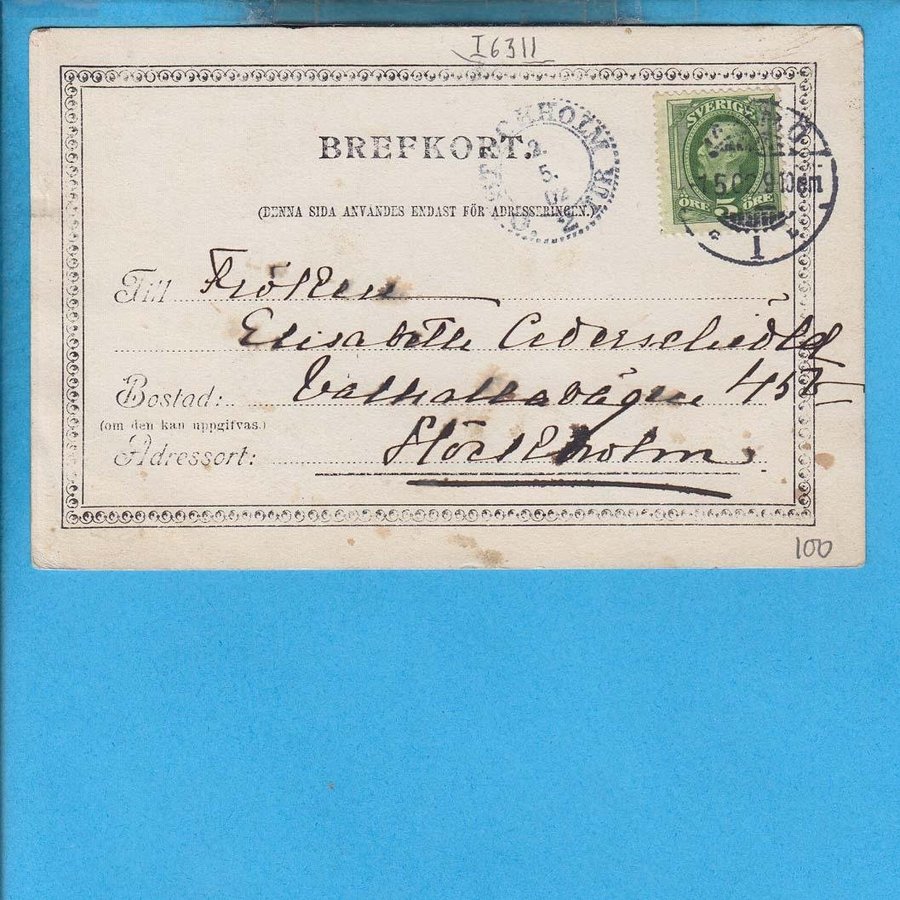 I6311
BREFKORT.
STOCKHOLM
2. TUR
2.
5.
02
SVERIGE
5
ÖRE ÖRE
1.5.02.910em
1
(DENNA SIDA ANVÄNDES ENDAST FÖR ADRESSERINGEN.)
Till Fröken
Elisabeth Cederschiöld
Bostad: Valhallavägen 45
(om den kan uppgifvas.)
Adressort: Stockholm
100